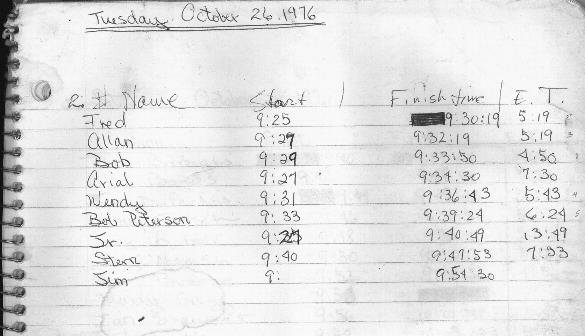 Tuesday October 26, 1976
2. # Name Start Finish time E.T.
Fred 9:25 9:30:19 5:19
Allan 9:27 9:32:19 5:19
Bob 9:29 9:33:50 4:50
Arial 9:27 9:34:30 7:30
Wendy 9:31 9:36:43 5:43
Bob Peterson 9:33 9:39:24 6:24
Jr. 9:27 9:40:49 13:49
Stern 9:40 9:47:53 7:53
Jim 9: 9:54 30